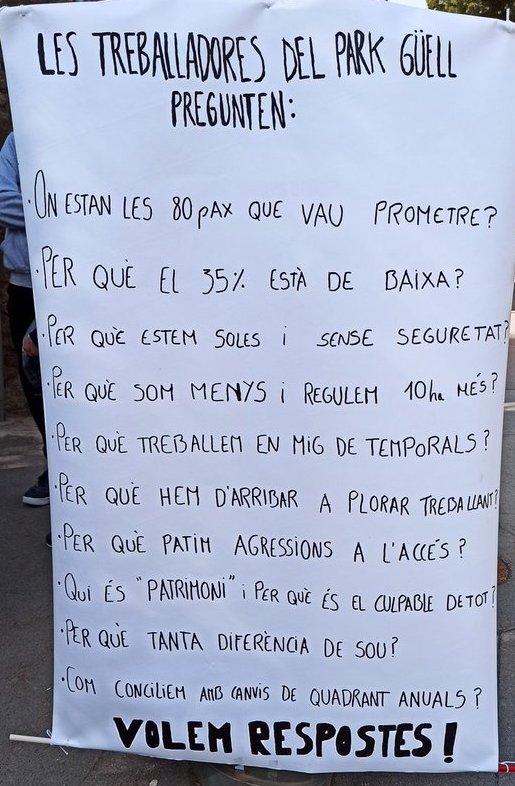 LES TREBALLADORES DEL PARK GÜELL
PREGUNTEN:
·ON ESTAN LES 80 pAX QUE VAU PROMETRE?
·PER QUÈ EL 35% ESTÀ DE BAIXA?
·PER QUÈ ESTEM SOLES i SENSE SEGURETAT?
·PER QUÈ SOM MENYS i REGULEM 10ha MÉS?
·PER QUÈ TREBALLEM EN MIG DE TEMPORALS?
·PER QUÈ HEM D'ARRIBAR A PLORAR TREBALLANT?
·PER QUÈ PATIM AGRESSIONS A L'ACCÉS?
·QUI ÉS "PATRIMONI" i PER QUÈ ÉS EL CULPABLE DE TOT?
·PER QUÈ TANTA DIFERÈNCIA DE SOU?
·COM CONCILIEM AMB CANVIS DE QUADRANT ANUALS?
VOLEM RESPOSTES!